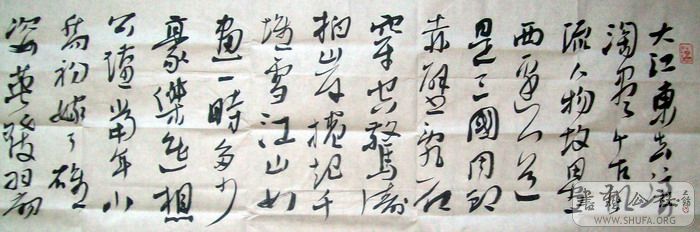 大江東去浪
淘盡千古風
流人物故壘
西邊人道
是三國周郎
赤壁亂石
穿空驚濤
拍岸捲起千
堆雪江山如
畫一時多少
豪傑遙想
公瑾當年小
喬初嫁了雄
姿英發羽扇
WWW.SHUFA.ORG